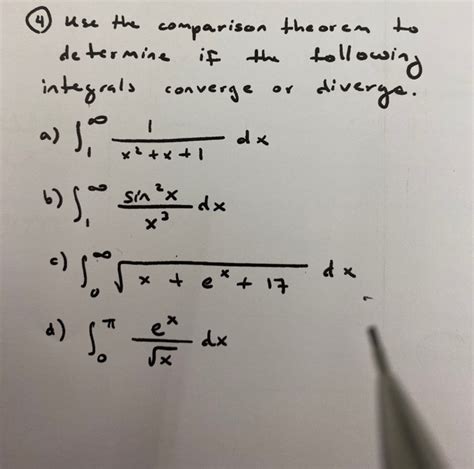 ④ Use the comparison theorem to
determine if the following
integrals converge or diverge.
a) ∫₁^∞ 1/(x² + x + 1) dx
b) ∫₁^∞ sin²x/x³ dx
c) ∫₀^∞ √(x + eˣ + 17) dx
d) ∫₀^π eˣ/√x dx